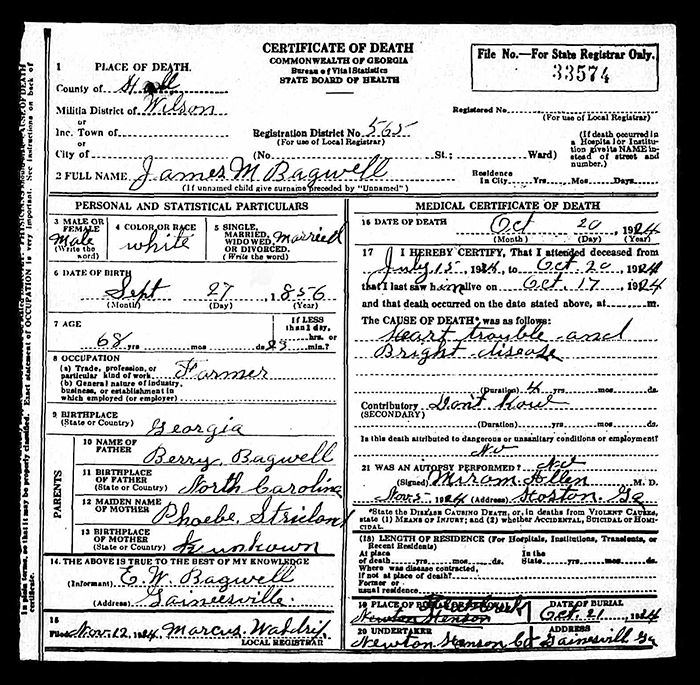 CERTIFICATE OF DEATH
COMMONWEALTH OF GEORGIA
Bureau of Vital Statistics
STATE BOARD OF HEALTH
File No.—For State Registrar Only.
33574
1 PLACE OF DEATH.
County of Hall
Militia District of Wilson
or
Inc. Town of
or
City of
Registration District No. 565
(For use of Local Registrar)
(No. St.; Ward)
Registered No.
(For use of Local Registrar)
(If death occurred in
a Hospital or Institu-
tion give its NAME in-
stead of street and
number.
2 FULL NAME James M Bagwell
(If unnamed child give surname preceded by "Unnamed")
Residence
In City Yrs. Mos. Days.
PERSONAL AND STATISTICAL PARTICULARS
3 MALE OR FEMALE
Male
(Write the word)
4 COLOR OR RACE
white
5 SINGLE, MARRIED, WIDOWED, OR DIVORCED.
Married
(Write the word)
6 DATE OF BIRTH
Sept 27, 1856
(Month) (Day) (Year)
7 AGE
68 yrs mos ds
If LESS than 1 day,
hrs. or
min.?
8 OCCUPATION
(a) Trade, profession, or
particular kind of work Farmer
(b) General nature of industry,
business, or establishment in
which employed (or employer)
9 BIRTHPLACE
(State or Country) Georgia
PARENTS
10 NAME OF FATHER Berry Bagwell
11 BIRTHPLACE OF FATHER
(State or Country) North Carolina
12 MAIDEN NAME OF MOTHER Phoebe
13 BIRTHPLACE OF MOTHER
(State or Country)
14. THE ABOVE IS TRUE TO THE BEST OF MY KNOWLEDGE
(Informant) E. W. Bagwell
(Address) Gainesville
15
Filed Nov. 12, 1924 Marcus
LOCAL REGISTRAR
MEDICAL CERTIFICATE OF DEATH
16 DATE OF DEATH
Oct 20 1924
(Month) (Day) (Year)
17 I HEREBY CERTIFY, That I attended deceased from
July 15 1924, to Oct. 20 1924
that I last saw him alive on Oct. 17 1924
and that death occurred on the date stated above, at m.
The CAUSE OF DEATH* was as follows:
Heart trouble and
Bright disease
(Duration) 4 yrs. mos. ds.
Contributory Dont Know
(SECONDARY)
(Duration) yrs. mos. ds.
Is this death attributed to dangerous or unsanitary conditions or employment?
No
21 WAS AN AUTOPSY PERFORMED? No
(Signed) M. D.
Nov. 5 1924 (Address) Ga
*State the DISEASE CAUSING DEATH, or, in deaths from VIOLENT CAUSES,
state (1) MEANS OF INJURY; and (2) whether ACCIDENTAL, SUICIDAL OR HOMI-
CIDAL.
(18) LENGTH OF RESIDENCE (For Hospitals, Institutions, Transients, or
Recent Residents)
At place In the
of death yrs. mos. ds. State yrs. mos. ds.
Where was disease contracted,
if not at place of death?
Former or
usual residence
19 PLACE OF
Newton Henson
DATE OF BURIAL
Oct. 21, 1924
20 UNDERTAKER
Newton Henson Co
ADDRESS
Gainesvill Ga